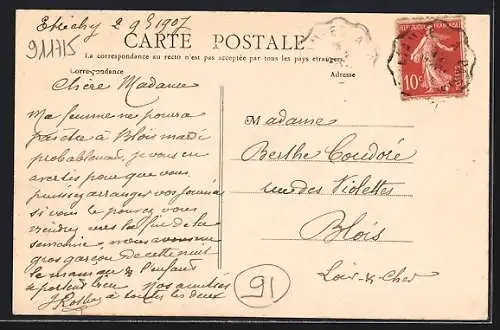 Etréchy 2 9bre 1907
911715
CARTE POSTALE
La correspondance au recto n'est pas acceptée par tous les pays étrangers
Correspondance
Adresse
RÉPUBLIQUE FRANÇAISE
10c
POSTES
Chère Madame
Ma femme ne pourra
pas être à Blois mardi
probablement, je vous en
avertis pour que vous
puissiez arranger vos journées
si vous le pouvez vous
viendrez vers la fin de la
semaine, nous avons un
gros garçon de cette nuit
la maman & l'enfant
se portent bien Nos amitiés
à toutes les deux
Madame
Berthe Coudoré
rue des Violettes
Blois
Loir & Cher
91